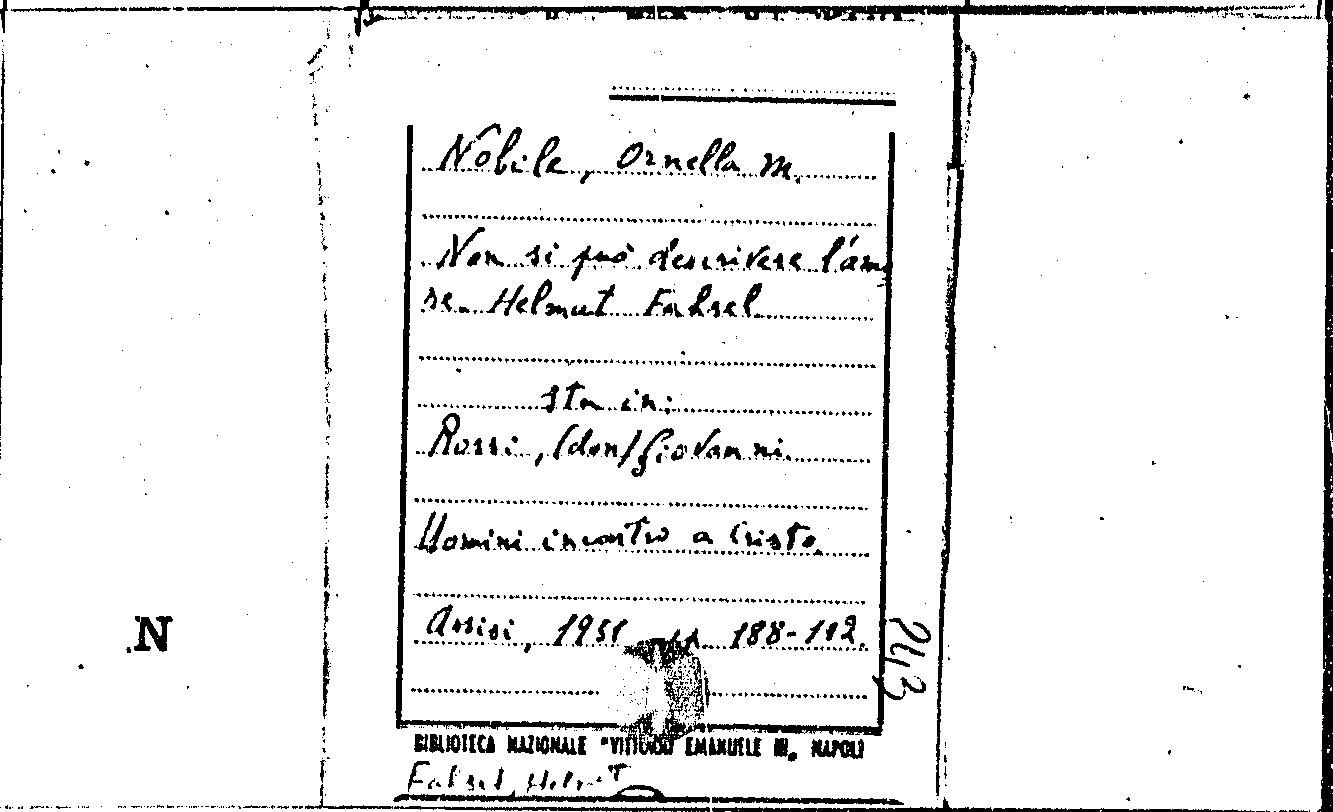 Nobile, Ornella M.
Non si può descrivere l'amo
re. Helmut Fahsel
sta in:
Rossi, (don) Giovanni.
Uomini incontro a Cristo.
Assisi, 1951 pp. 188-192.
243
N
BIBLIOTECA NAZIONALE "VITTORIO EMANUELE III" NAPOLI
Fahsel, Helmut